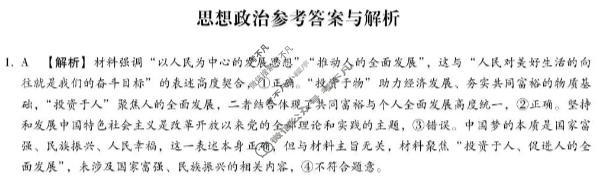 思想政治参考答案与解析
1. A 【解析】材料强调“以人民为中心的发展思想”“推动人的全面发展”，这与“人民对美好生活的向
往就是我们的奋斗目标”的表述高度契合，①正确。“投资于物”助力经济发展、夯实共同富裕的物质基
础，“投资于人”聚焦人的全面发展，二者结合体现了共同富裕与个人全面发展高度统一，②正确。坚持
和发展中国特色社会主义是改革开放以来党的全部理论和实践的主题，③错误。中国梦的本质是国家富
强、民族振兴、人民幸福，这一表述本身正确，但与材料主旨无关，材料聚焦“投资于人、促进人的全
面发展”，未涉及国家富强、民族振兴的相关内容，④不符合题意。